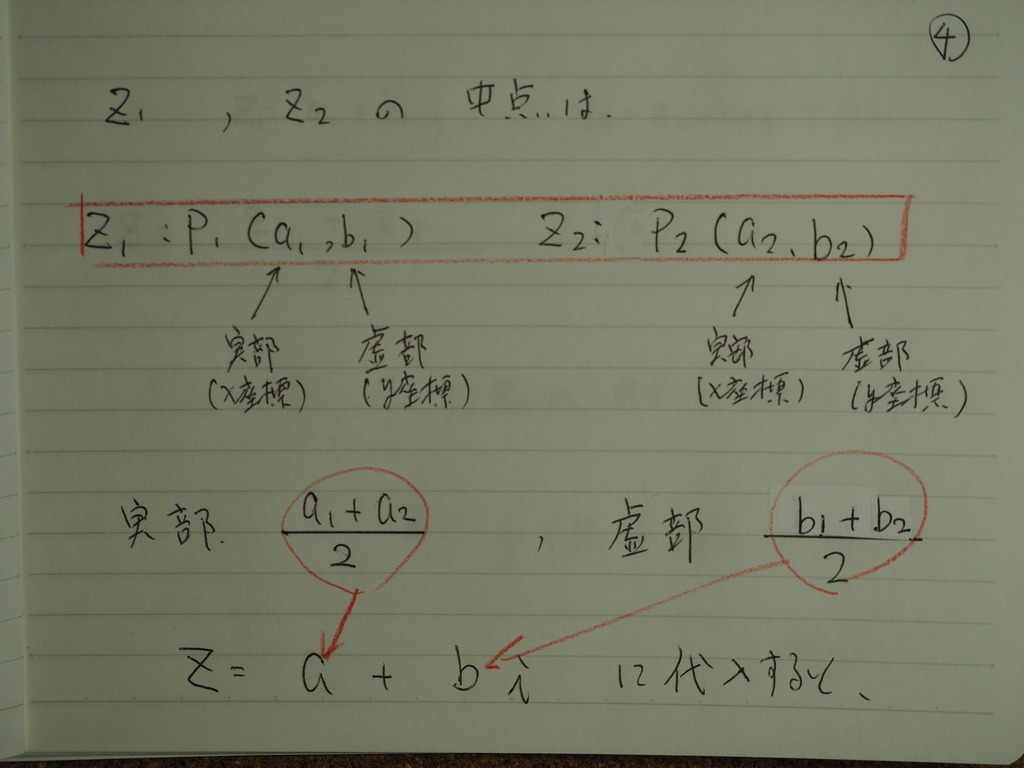 ④
Z₁ , Z₂ の 中点は、
Z₁ : P₁ (a₁, b₁) Z₂: P₂ (a₂, b₂)
実部 虚部 実部 虚部
(x座標) (y座標) (x座標) (y座標)
実部. (a₁+a₂)/2 , 虚部 (b₁+b₂)/2
Z = a + bi に代入すると、